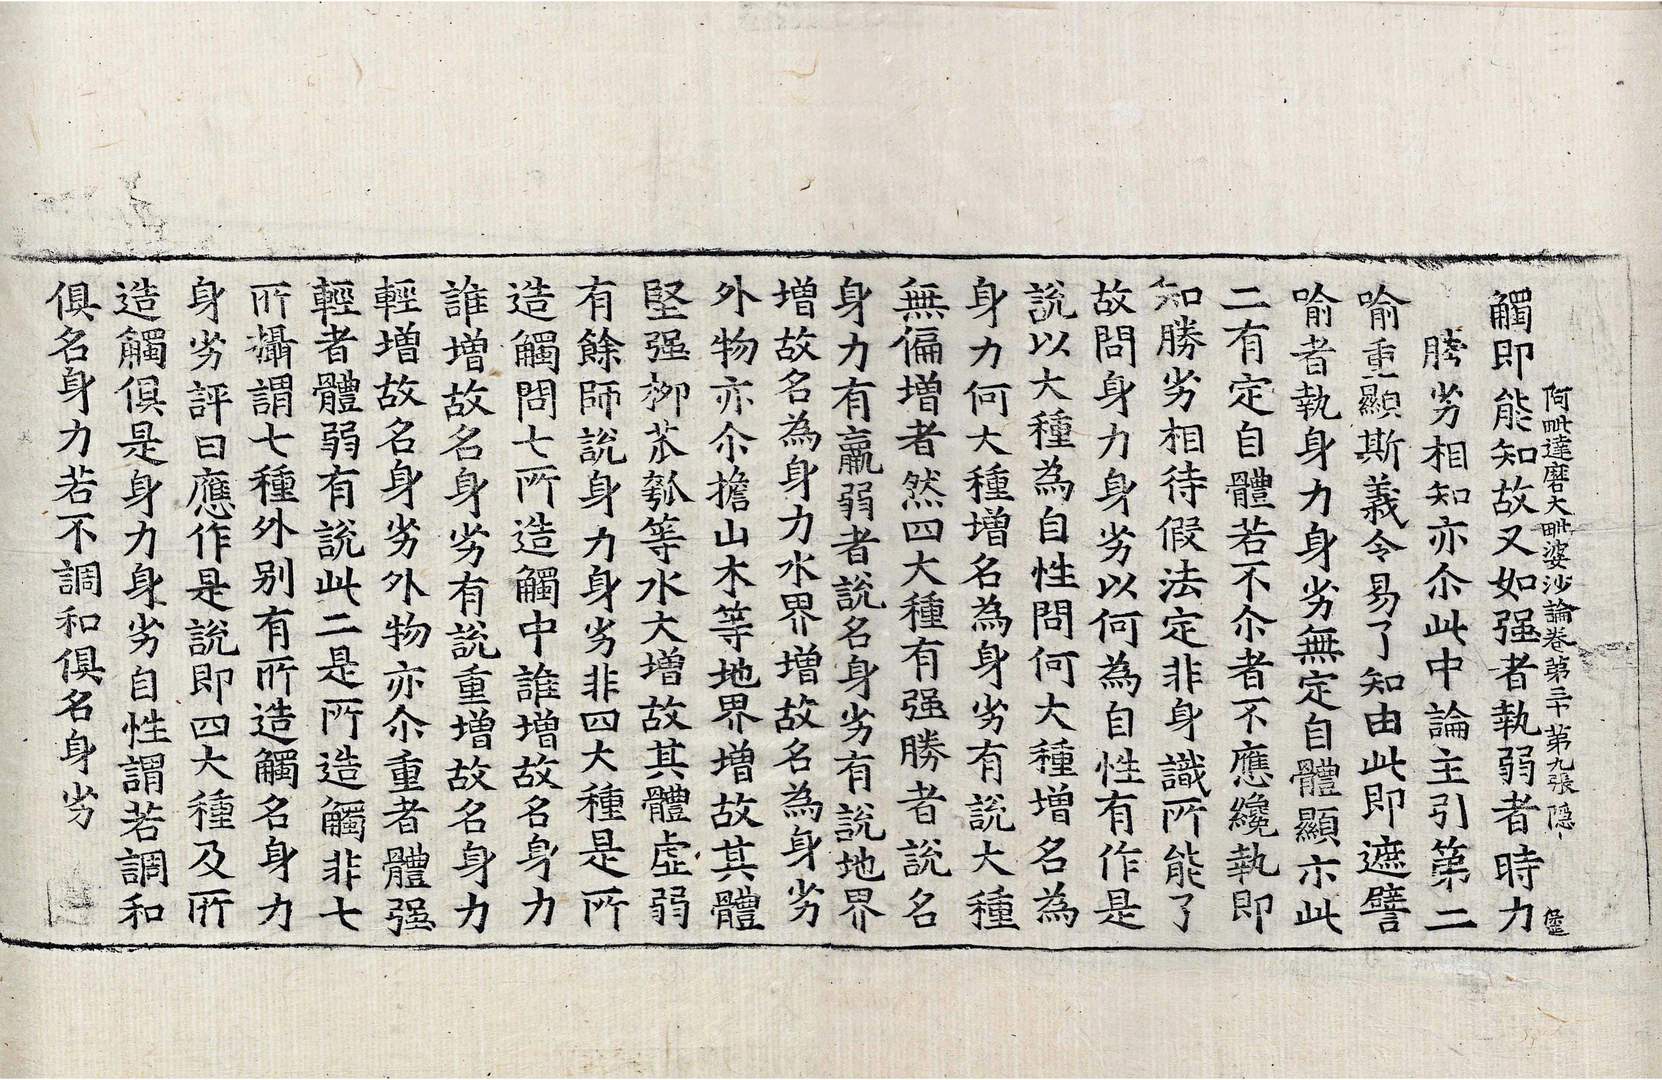 阿毗達磨大毗婆沙論卷第三十 第九張 隐
觸即能知故又如强者執弱者時力
勝劣相知亦尒此中論主引第二
喻重顯斯義令易了知由此即遮譬
喻者執身力身劣無定自體顯示此
二有定自體若不尒者不應纔執即
知勝劣相待假法定非身識所能了
故問身力身劣以何為自性有作是
說以大種為自性問何大種增名為
身力何大種增名為身劣有說大種
無偏增者然四大種有强勝者說名
身力有羸弱者說名身劣有說地界
增故名為身力水界增故名為身劣
外物亦尒擔山木等地界增故其體
堅强栁苶瓠等水大增故其體虛弱
有餘師說身力身劣非四大種是所
造觸問七所造觸中誰增故名身力
誰增故名身劣有說重增故名身力
輕增故名身劣外物亦尒重者體强
輕者體弱有說此二是所造觸非七
所攝謂七種外别有所造觸名身力
身劣評曰應作是說即四大種及所
造觸俱是身力身劣自性謂若調和
俱名身力若不調和俱名身劣